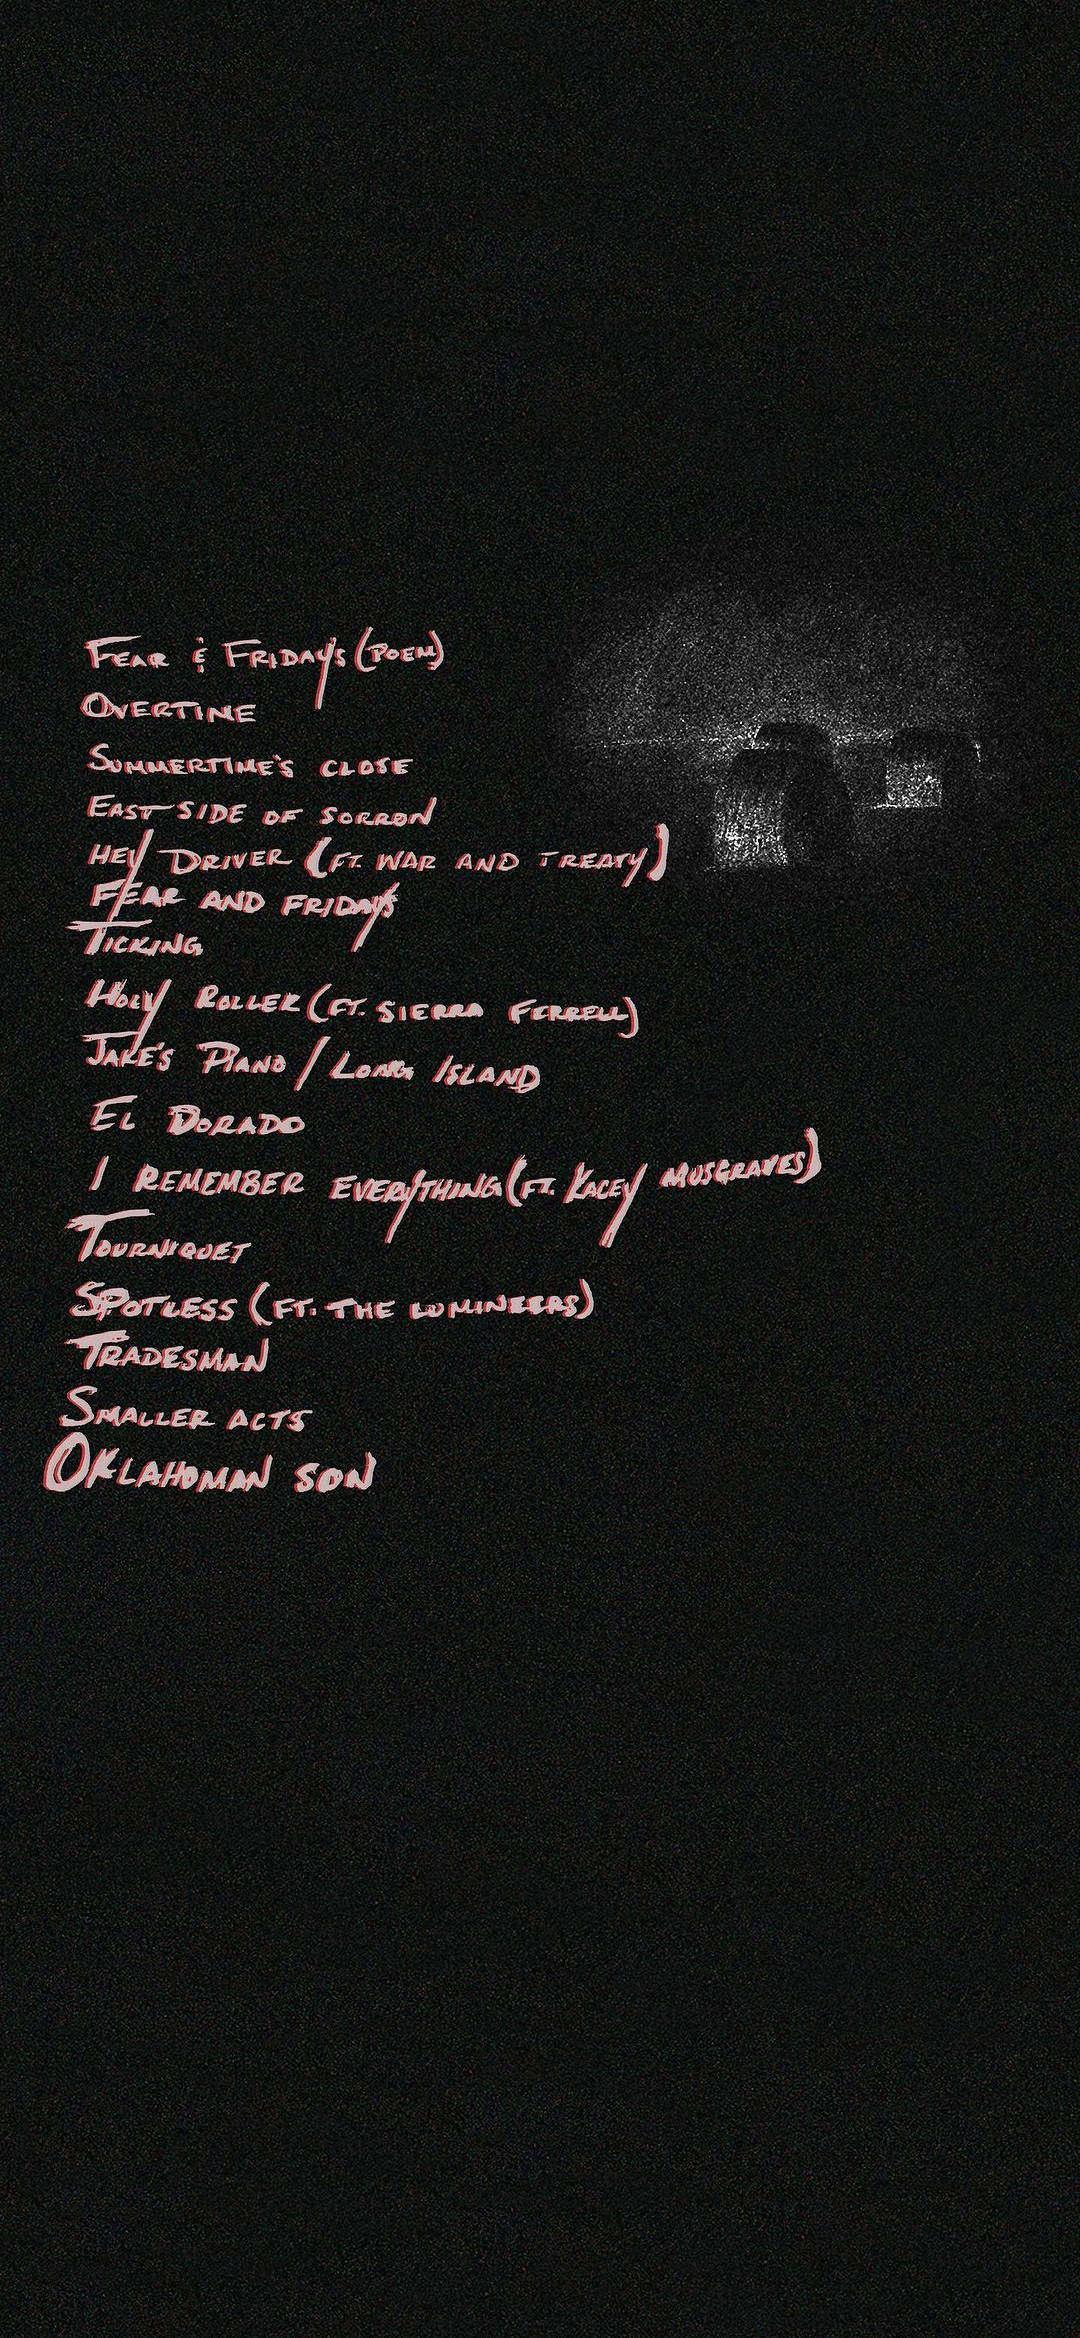 FEAR & FRIDAYS (POEM)
OVERTIME
SUMMERTIME'S CLOSE
EAST SIDE OF SORROW
HEY DRIVER (FT. WAR AND TREATY)
FEAR AND FRIDAYS
TICKING
HOLY ROLLER (FT. SIERRA FERRELL)
JAKE'S PIANO / LONG ISLAND
EL DORADO
I REMEMBER EVERYTHING (FT. KACEY MUSGRAVES)
TOURNIQUET
SPOTLESS (FT. THE LUMINEERS)
TRADESMAN
SMALLER ACTS
OKLAHOMAN SON